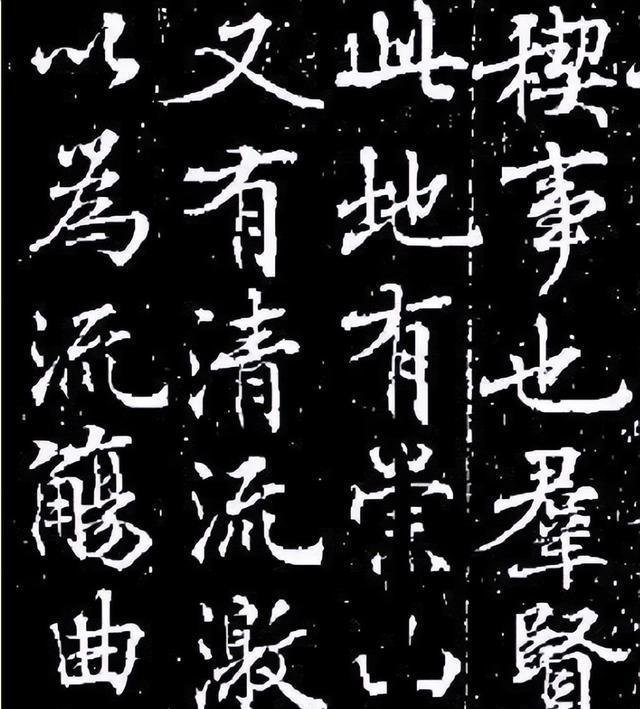 稧事也羣賢
此地有崇山
又有清流激
以為流觴曲